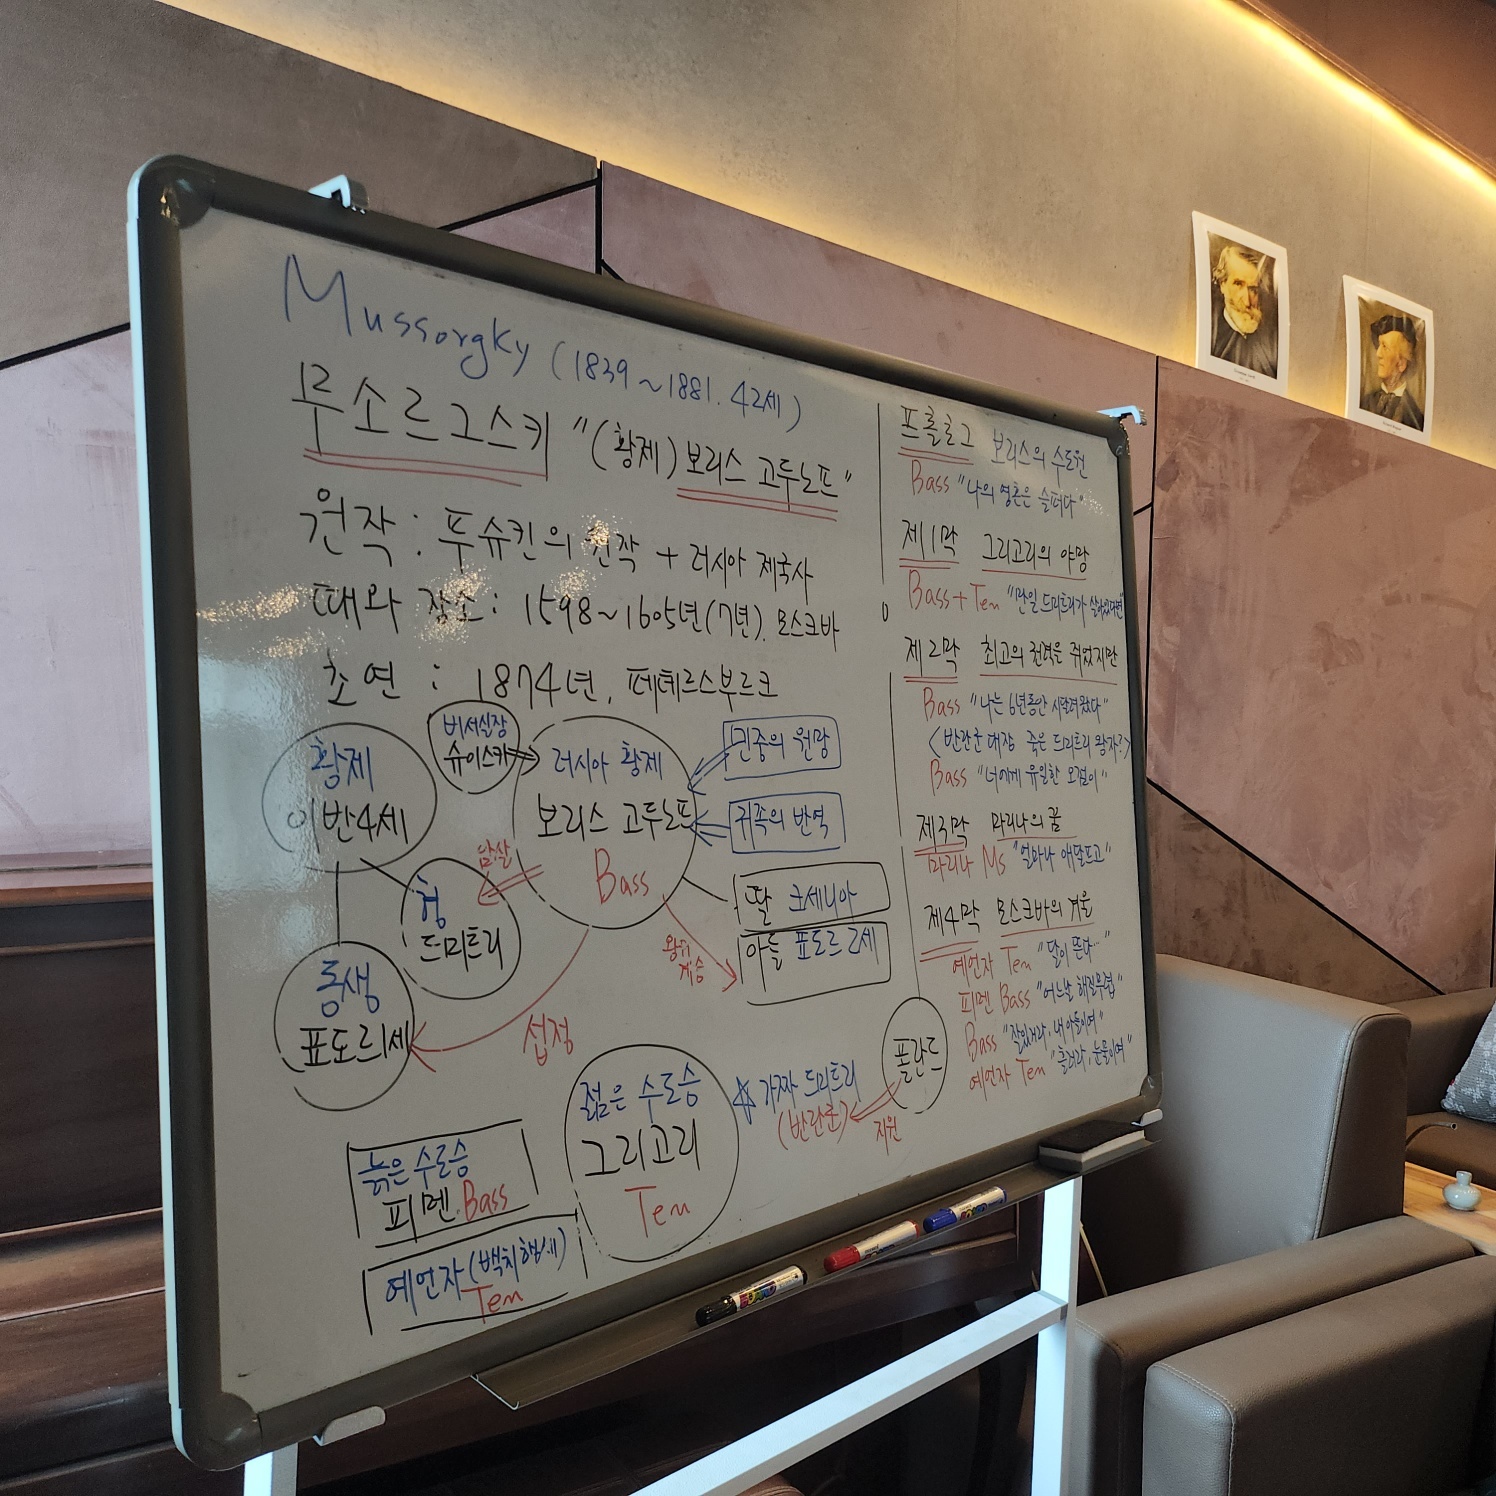 Mussorgky (1839~1881. 42세)
무소르그스키 "(황제) 보리스 고두노프"
원작 : 푸슈킨의 원작 + 러시아 제국사
때와 장소 : 1598~1605년(7년). 모스크바
초연 : 1874년, 페테르스부르크
황제
이반4세
비서실장
슈이스키
러시아 황제
보리스 고두노프
Bass
민중의 원망
귀족의 반역
암살
형
드미트리
딸 크세니아
아들 표도르 2세
왕위
계승
동생
표도르1세
섭정
젊은 수도승
그리고리
Ten
☆ 가짜 드미트리
(반란군)
폴란드
지원
늙은 수도승
피멘. Bass
예언자 (백치행세)
Ten
프롤로그 보리스의 수도원
Bass "나의 영혼은 슬프다"
제1막 그리고리의 야망
Bass + Ten "만일 드미트리가 살아있다면"
제2막 최고의 권력을 쥐었지만
Bass "나는 6년동안 시달려왔다"
<반란군 대장 죽은 드미트리 왕자?>
Bass "너에게 유일한 오점이"
제3막 마리나의 꿈
마리나 Ms "얼마나 애달프고"
제4막 모스크바의 겨울
예언자 Ten "달이 뜬다..."
피멘 Bass "어느날 해질무렵"
Bass "잘있거라, 내 아들이여"
예언자 Ten "흘러라, 눈물이여"